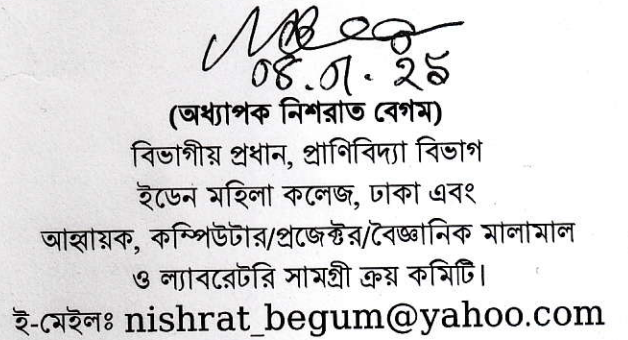 ০৪.০১.২৬
(অধ্যাপক নিশরাত বেগম)
বিভাগীয় প্রধান, প্রাণিবিদ্যা বিভাগ
ইডেন মহিলা কলেজ, ঢাকা এবং
আহ্বায়ক, কম্পিউটার/প্রজেক্টর/বৈজ্ঞানিক মালামাল
ও ল্যাবরেটরি সামগ্রী ক্রয় কমিটি।
ই-মেইলঃ nishrat_begum@yahoo.com